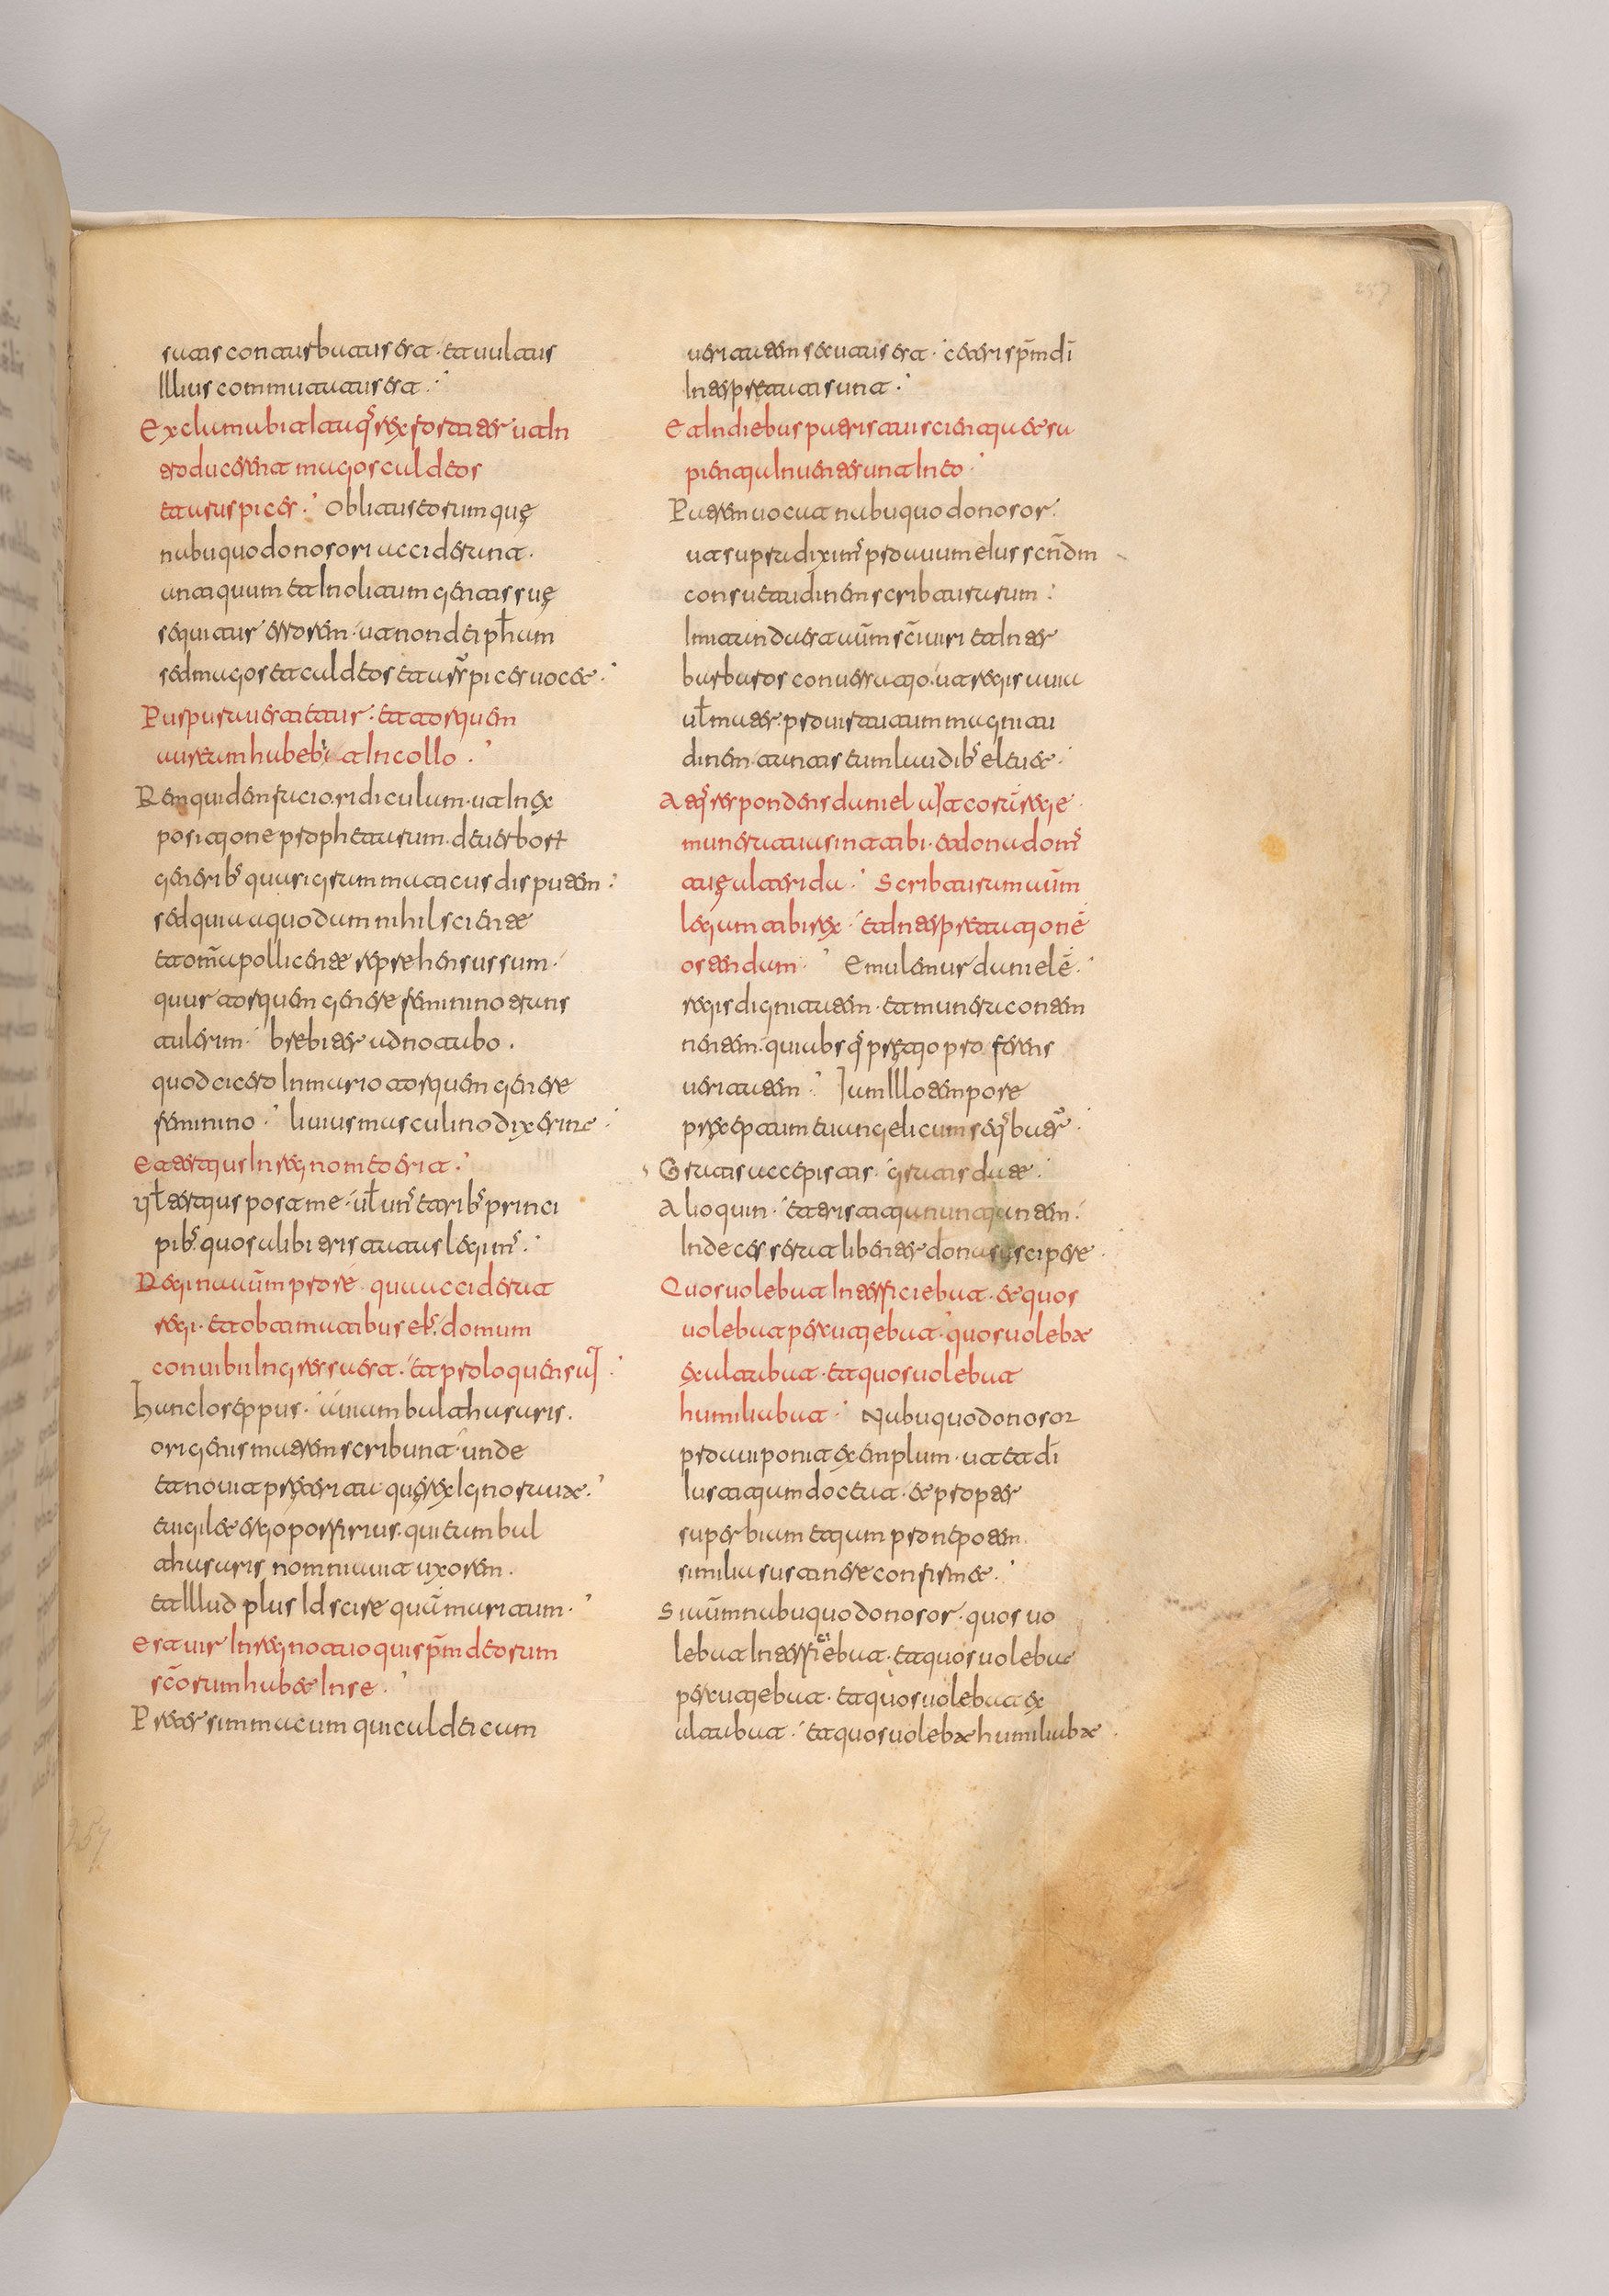 suas conturbatus est· et uultus
Illius commutatus est·
Exclamabit itaq; rex fortiter· ut In
troducerent magos caldeos
et aruspices· Oblitus eorum quę
nabuquodonosori acciderunt·
antiquum et Inolitum gentis suę
sequitur errorem· ut non dei phetam
sed magos et caldeos et aruspices uocet·
Purpura uestietur· et torquem
aureum habebit In collo·
Rem quidem facio ridiculam· ut In ex
positione prophetarum· de uerborum
generib; quasi grammaticus disputem·
sed quia a quodam nihil sciente
et omīa pollicente reprehensus sum·
quur torquem genere feminino trans
tulerim· brebiter adnotabo·
quod cicero In mario torquem genere
feminino· liuius masculino dixerint·
Et tertius In regno meo erit·
Vł tertius post me· uł un; e trib; princi
pib; quos alibi tristatas legim;
Regina aūm pro re· qua acciderat
regi· et obtimatibus ei; domum
conuibii Ingressa est· et proloquens ait·
Hanc Ioseppus· auiam baltasaris·
origenis matrem scribunt· unde
et nouit preterita quę rex Ignorabat·
euigilet ergo porfirius· qui eam bal
tasaris somniauit uxorem·
et Illud plus Id scire quam maritum·
Est uir In regno tuo qui spm deorum
scorum habet In se·
Preter simmacum qui caldeicam
ueritatem secutus est· ceteri spm di
Interpretati sunt·
Et In diebus patris tui scientia et sa
pientia Inuente sunt In eo·
Patrem uocat nabuquodonosor·
ut supra dixim; proauum eius scndm
consuetudinem scribturarum·
Imitanda est aūm sci uiri et Inter
barbaros conuersatio· ut regis auia
uł mater pro uirtutum magnitu
dinem· tantis eum laudib; eleuet·
Ad q; respondens daniel ait coram rege·
munera tua sint tibi· et dona dom;
tuę alteri da· Scribturam aūm
legam tibi rex· et Interpretationē
ostendam· Emulemur danielē·
regis dignitatem· et munera contem
nentem· qui absq; pretio proferens
ueritatem· Iam Illo tempore
preceptum euangelicum sequebatur·
Gratis accepistis· gratis date·
Alioquin· et tristia nuntiantem·
Indecens erat libenter dona suscipere·
Quos uolebat Interficiebat· et quos
uolebat percutiebat· quos uolebat
exultabat· et quos uolebat
humiliabat· Nabuquodonosor
proaui ponit exemplum· ut et di
Iustitiam doceat· et propter
superbiam etiam pronepotem
similia sustinere confirmet·
Si aūm nabuquodonosor· quos uo
lebat Interficiebat· et quos uolebat
percutiebat· et quos uolebat ex
ultabat· et quos uolebat humiliabat·
257